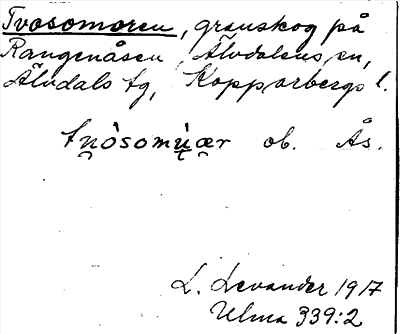 Tvosomoren, granskog på
Rangenåsen, Älvdalens sn,
Älvdals tg, Kopparbergs l.
tu̯òsomų̀ær ob. Ås.
L. Levander 1917
Ulma 339:2